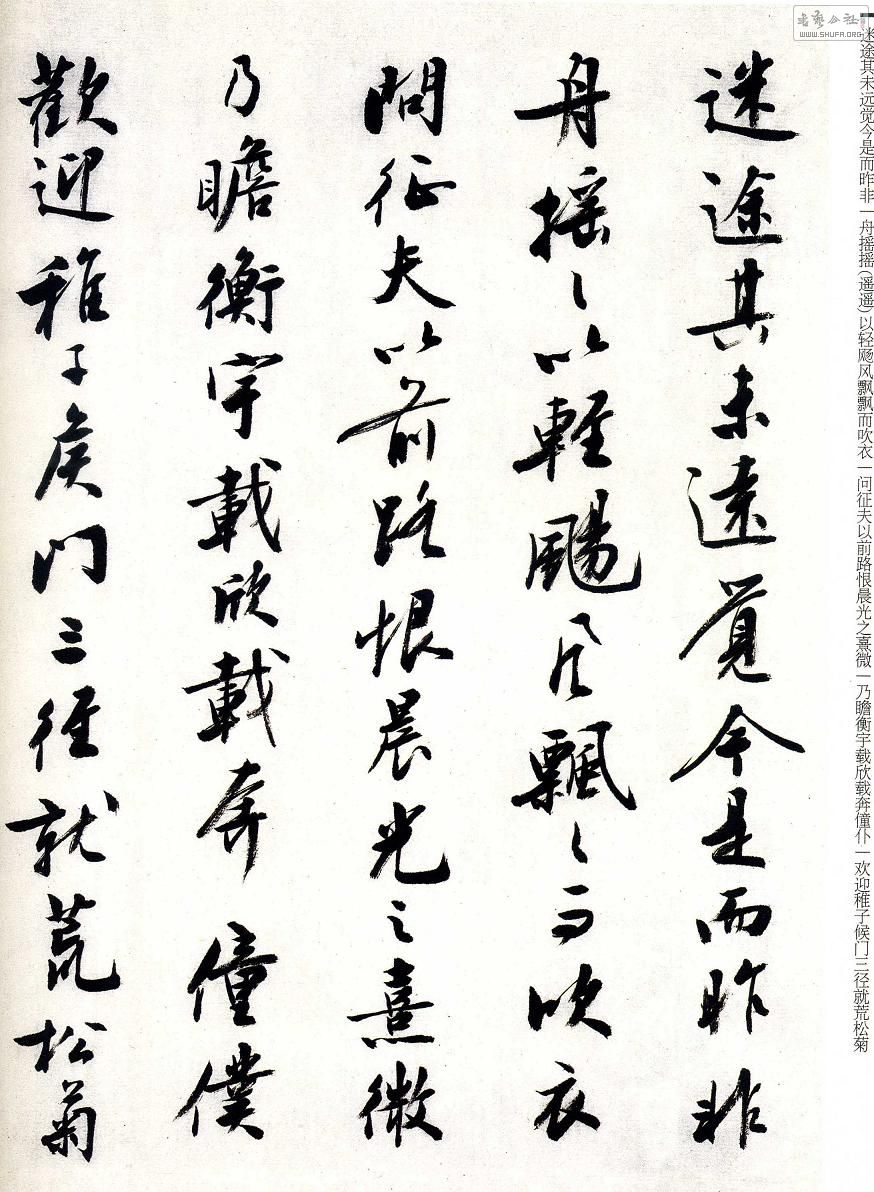 迷途其未遠覺今是而昨非
舟搖〻以輕颺風飄〻而吹衣
問征夫以前路恨晨光之熹微
乃瞻衡宇載欣載奔僮僕
歡迎稚子候門三徑就荒松菊
迷途其未远觉今是而昨非一舟摇摇(遥遥)以轻飏风飘飘而吹衣一问征夫以前路恨晨光之熹微一乃瞻衡宇载欣载奔僮仆一欢迎稚子候门三径就荒松菊
WWW.SHUFA.ORG